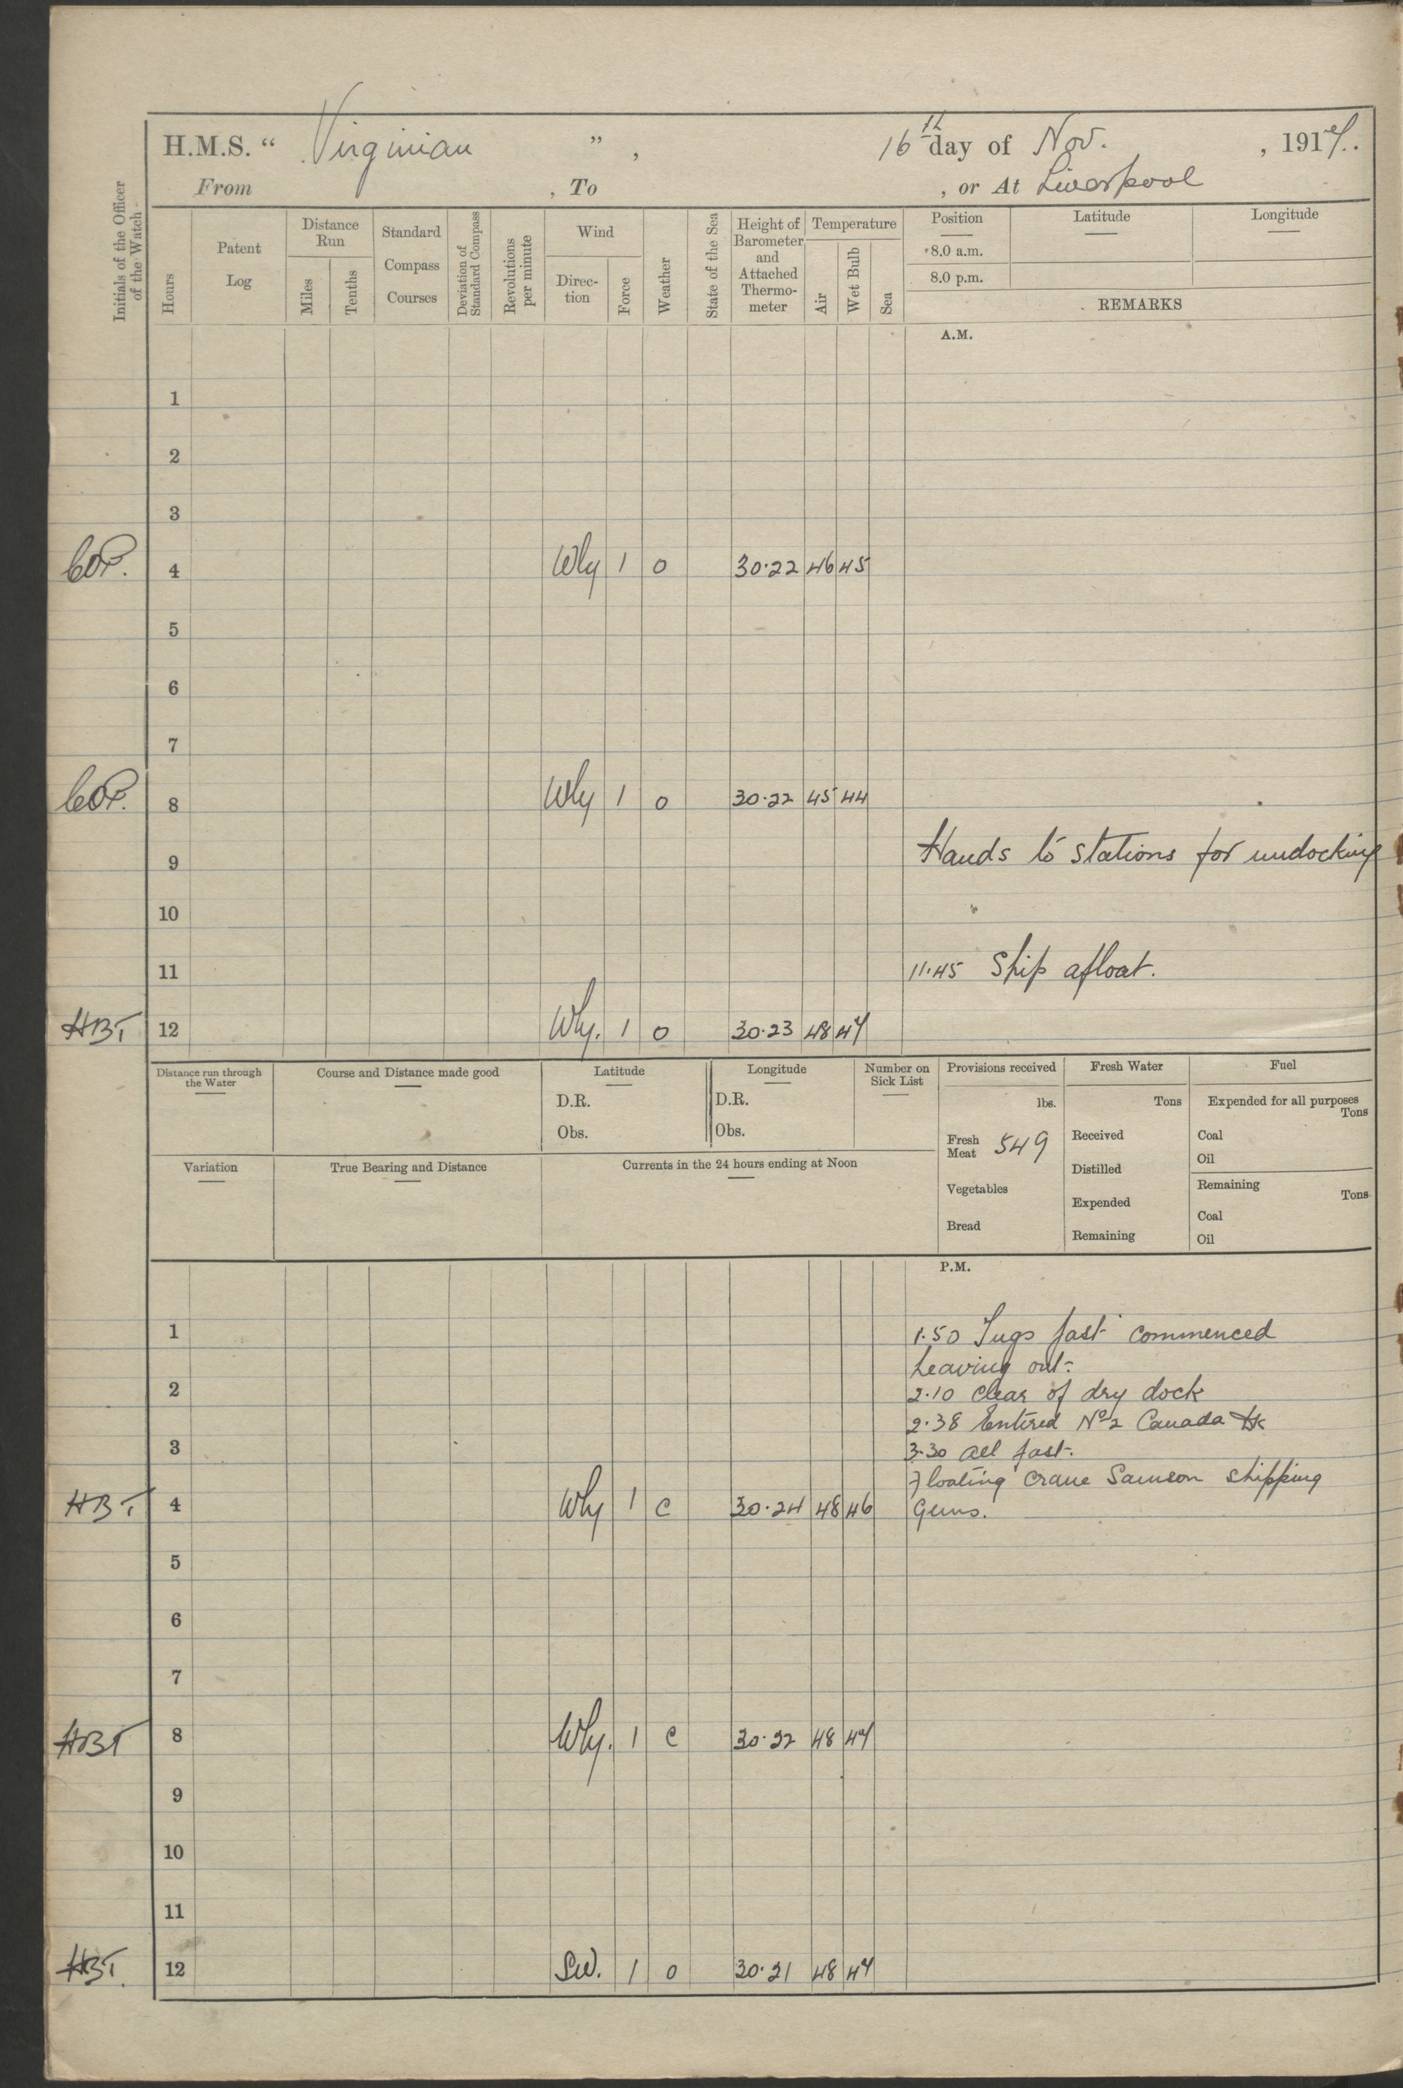 H.M.S. “ Virginian ” , 16th day of Nov. , 1917.
From , To , or At Liverpool
Initials of the Officer of the Watch
Hours
Patent Log
Distance Run
Miles
Tenths
Standard Compass Courses
Deviation of Standard Compass
Revolutions per minute
Wind
Direc-tion
Force
Weather
State of the Sea
Height of Barometer and Attached Thermo-meter
Temperature
Air
Wet Bulb
Sea
Position Latitude Longitude
8.0 a.m.
8.0 p.m.
REMARKS
A.M.
1
2
3
4 Wly 1 o 30.22 46 45
5
6
7
8 Wly 1 o 30.22 45 44
Hands to stations for undocking
9
10
11 11.45 Ship afloat.
HBT 12 Wly. 1 o 30.23 48 47
Distance run through the Water
Course and Distance made good
Latitude
D.R.
Obs.
Longitude
D.R.
Obs.
Number on Sick List
Provisions received
lbs.
Fresh Meat 549
Vegetables
Bread
Fresh Water
Tons
Received
Distilled
Expended
Remaining
Fuel
Expended for all purposes
Tons
Coal
Oil
Remaining
Tons
Coal
Oil
Variation
True Bearing and Distance
Currents in the 24 hours ending at Noon
P.M.
1 1.50 Tugs fast commenced
heaving out.
2 2.10 clear of dry dock
2.38 Entered No 2 Canada Dk
3 3.30 all fast.
Floating crane Samson shipping
HBT 4 Wly 1 c 30.24 48 46 Guns.
5
6
7
HBT 8 Wly. 1 c 30.22 48 47
9
10
11
HBT. 12 SW. 1 o 30.21 48 47